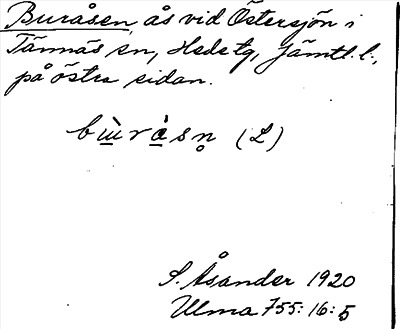 Buråsen, ås vid Östersjön i
Tännäs sn, Hede tg, Jämtl. l.,
på östra sidan.
bù̲rà̲sn̥ (L)
S. Åsander 1920
Ulma 755:16:5